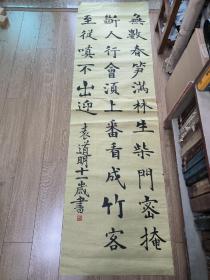 無數春笋滿林生柴門密掩
斷人行會須上番看成竹客
至從嗔不出迎
袁道明十一歲書